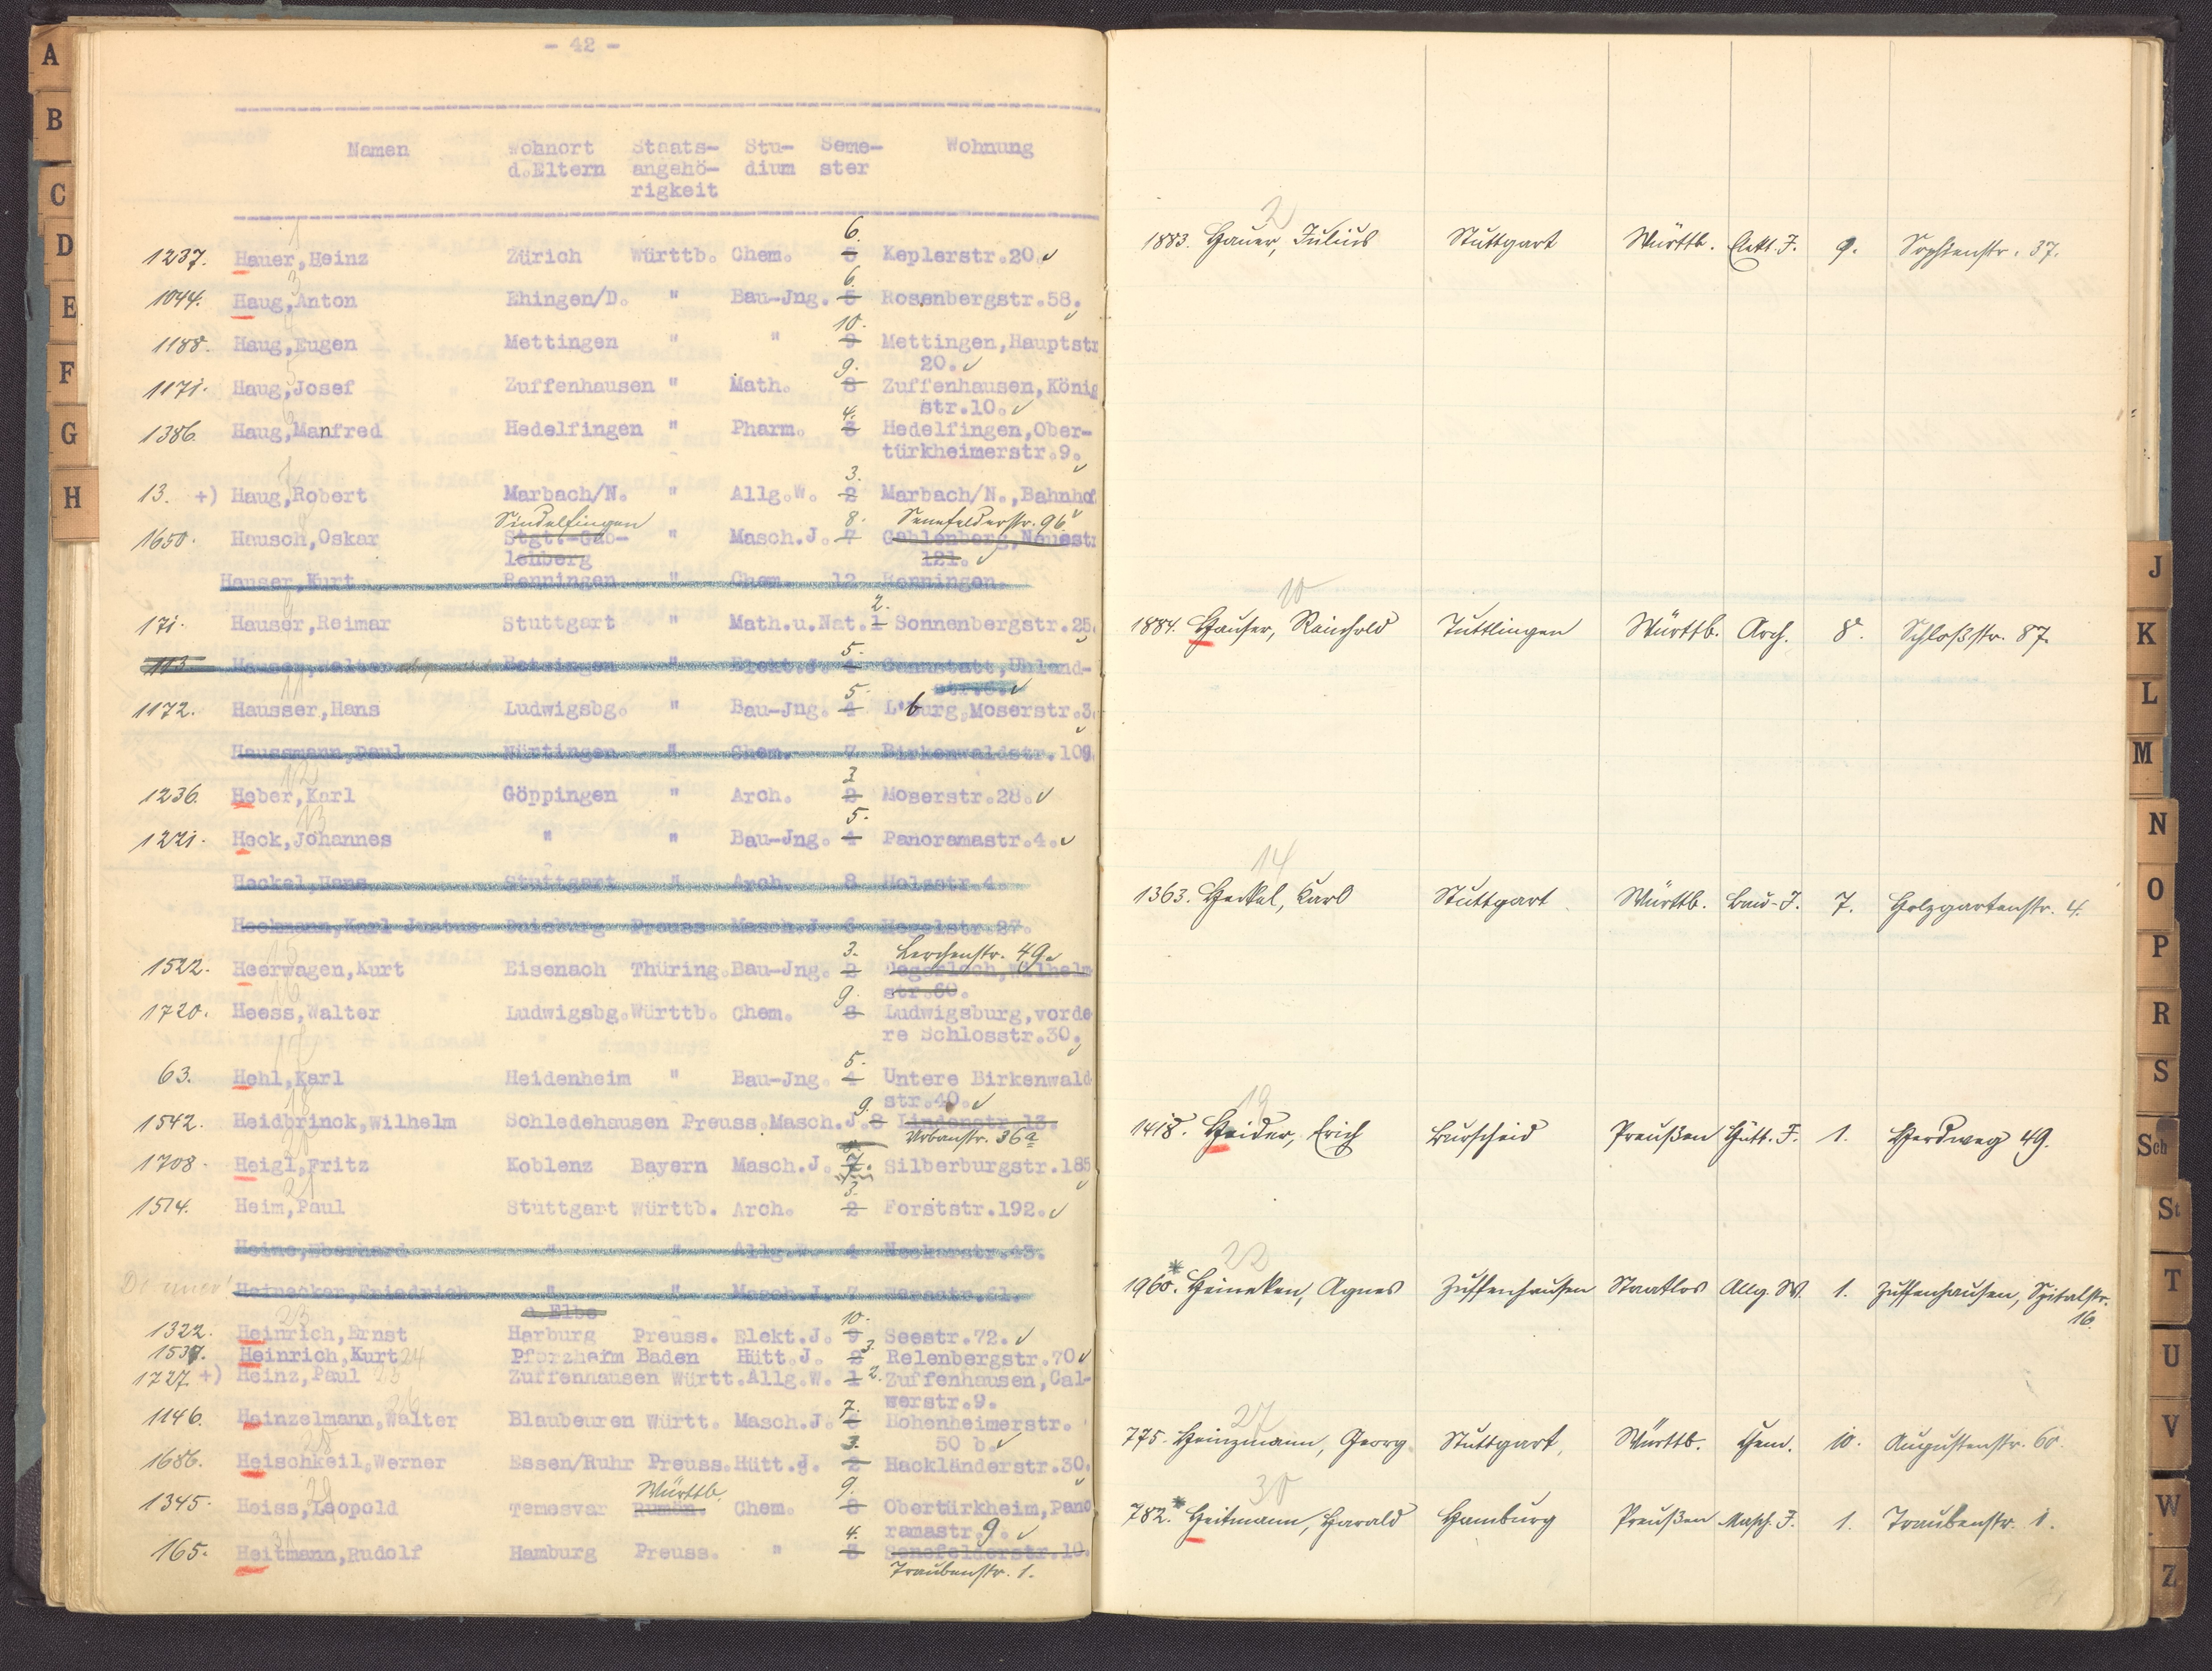 - 42 -
Namen Wohnort Staats- Stu- Seme- Wohnung
d.Eltern angehö- dium ster
rigkeit
1
6.
1237. Hauer,Heinz Zürich Württb. Chem. 5 Keplerstr.20.✓
3
6.
1044. Haug,Anton Ehingen/D. " Bau-Jng. 5 Rosenbergstr.58.✓
4
10.
1188. Haug,Eugen Mettingen " " 9 Mettingen,Hauptstr
20.✓
5
9.
1171. Haug,Josef Zuffenhausen " Math. 8 Zuffenhausen,König
str.10.✓
6
4.
1386. Haug,Manfred Hedelfingen " Pharm. 3 Hedelfingen,Ober-
türkheimerstr.9.✓
7
3.
13. +) Haug,Robert Marbach/N. " Allg.W. 2 Marbach/N.,Bahnhof
Sindelfingen 8. Senefelderstr. 96.✓
1650. Hausch,Oskar Stgtt-Gab- " Masch.J. 7 Gablenberg,Neuestr
lenberg 121.✓
Hauser,Kurt Renningen " Chem. 12 Renningen.
2.
171. Hauser,Reimar Stuttgart " Math.u.Nat.1 Sonnenbergstr.25.✓
5.
113 Hauser,Walter " Elekt.J. 4 Cannstatt,Uhland-
str.8.✓
11
5.
1172. Hausser,Hans Ludwigsbg. " Bau-Jng. 4 L'burg,Moserstr.3.✓
Haussmann,Paul Nürtingen " Chem. 7 Birkenwaldstr.109.
12
3
1236. Heber,Karl Göppingen " Arch. 2 Moserstr.28.✓
13
5.
1221. Heck,Johannes " " Bau-Jng. 4 Panoramastr.4.✓
Heckel,Hans Stuttgart " Arch. 8 Holzstr.4.
Heckmann,Karl Justus Duisburg Preuss Masch.J. 6 Hegelstr.27.
15
3. Lerchenstr. 49.
1522. Heerwagen,Kurt Eisenach Thüring.Bau-Jng. 2 Degerloch,Wilhelm
str.60.
16
9.
1720. Heess,Walter Ludwigsbg.Württb. Chem. 8 Ludwigsburg,vorde
re Schlosstr.30.✓
17
5.
63. Hehl,Karl Heidenheim " Bau-Jng. 4 Untere Birkenwald
str.40.✓
18
9.
1542. Heidbrinck,Wilhelm Schledehausen Preuss.Masch.J.8 Lindenstr.13.
Urbanstr. 36a
20
1708. Heigl,Fritz Koblenz Bayern Masch.J. 7. Silberburgstr.185✓
21
3.
1514. Heim,Paul Stuttgart Württb. Arch. 2 Forststr.192.✓
Heine,Eberhard " " Allg.W. 4 Neckarstr.43.
Heinecker,Friedrich " " Masch.J. 7
a.Elbe
23
10.
1322. Heinrich,Ernst Harburg Preuss. Elekt.J. 9 Seestr.72.✓
1537. Heinrich,Kurt 24 Pforzheim Baden Hütt.J. 2 3. Relenbergstr.70✓
1727. +) Heinz,Paul 25 Zuffenhausen Württ.Allg.W. 1 2. Zuffenhausen,Cal-
werstr.9.
26
7.
1146. Heinzelmann,Walter Blaubeuren Württ. Masch.J. 6 Hohenheimerstr.
50 b.✓
28
3.
1686. Heischkeil,Werner Essen/Ruhr Preuss.Hütt.J. 2 Hackländerstr.30.✓
29
Württb. 9.
1345. Heiss,Leopold Temesvar Rumän. Chem. 8 Obertürkheim,Pano
ramastr.9.✓
31
4.
165. Heitmann,Rudolf Hamburg Preuss. " 3 Senefelderstr.10.
Traubenstr. 1.
2
1883. Hauer, Julius Stuttgart Württb. Elekt. J. 9. Sophienstr. 37.
10
1884. Hauser, Reinhold Tuttlingen Württb. Arch. 8. Schloßstr. 87.
14
1363. Heckel, Karl Stuttgart Württb. Bau-J. 7. Holzgartenstr. 4.
19
1418. Heider, Erich Burscheid Preußen Hütt. J. 1. Herdweg 49.
22
1960.* Heineken, Agnes Zuffenhausen Staatlos Allg. W. 1. Zuffenhausen, Spitalstr.
16.
27
775. Heinzmann, Georg Stuttgart, Württb. Chem. 10. Augustenstr. 60.
30
782.* Heitmann, Harald Hamburg Preußen Masch. J. 1. Traubenstr. 1.
A
B
C
D
E
F
G
H
J
K
L
M
N
O
P
R
S
Sch
St
T
U
V
W
Z